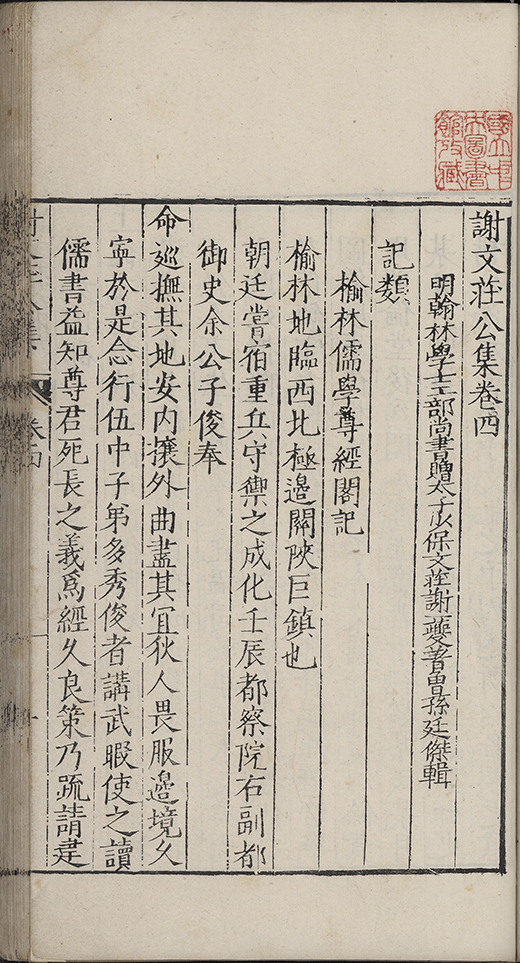 謝文莊公集卷四
明翰林學士工部尚書贈太子少保文莊謝一夔著曾孫廷傑輯
記類
榆林儒學尊經閣記
榆林地臨西北極邉關陝巨鎮也
朝廷嘗宿重兵守禦之成化壬辰都察院右副都
御史余公子俊奉
命巡撫其地安內攘外曲盡其宜狄人畏服邉境久
寧於是念行伍中子弟多秀俊者講武暇使之讀
儒書益知尊君死長之義爲經久良策乃疏請建
國立中
央圖書
館攷藏